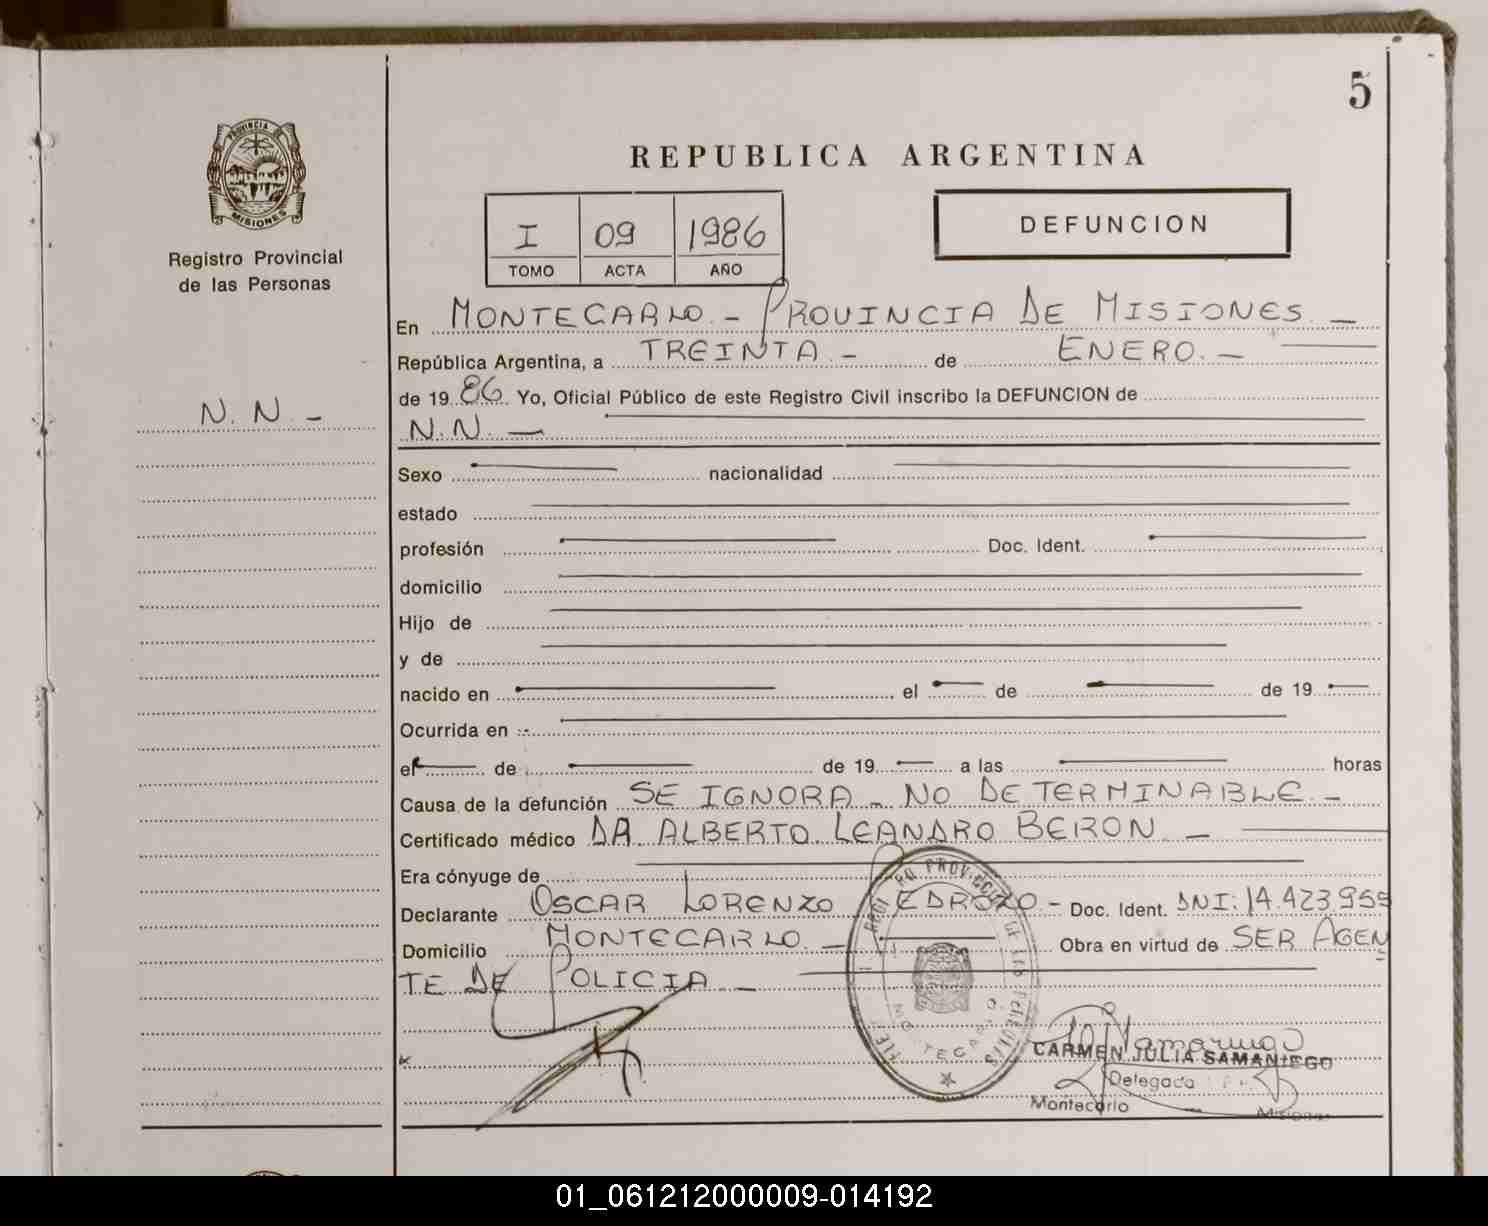 5
REPUBLICA ARGENTINA
PROVINCIA DE
MISIONES
Registro Provincial
de las Personas
I 09 1986
TOMO ACTA AÑO
DEFUNCION
N. N. -
En MONTECARLO - PROVINCIA DE MISIONES -
República Argentina, a TREINTA - de ENERO. -
de 19 86 Yo, Oficial Público de este Registro Civil inscribo la DEFUNCION de
N.N. -
Sexo nacionalidad
estado
profesión Doc. Ident.
domicilio
Hijo de
y de
nacido en el de de 19
Ocurrida en
el de de 19 a las horas
Causa de la defunción SE IGNORA - NO DETERMINABLE. -
Certificado médico DR. ALBERTO LEANDRO BEIRON -
Era cónyuge de
Declarante OSCAR LORENZO PEDROZO - Doc. Ident. DNI: 14.423.959
Domicilio MONTECARLO. - Obra en virtud de SER AGEN
TE DE POLICIA -
CARMEN JULIA SAMANIEGO
Delegada
Montecarlo Misiones
01_061212000009-014192